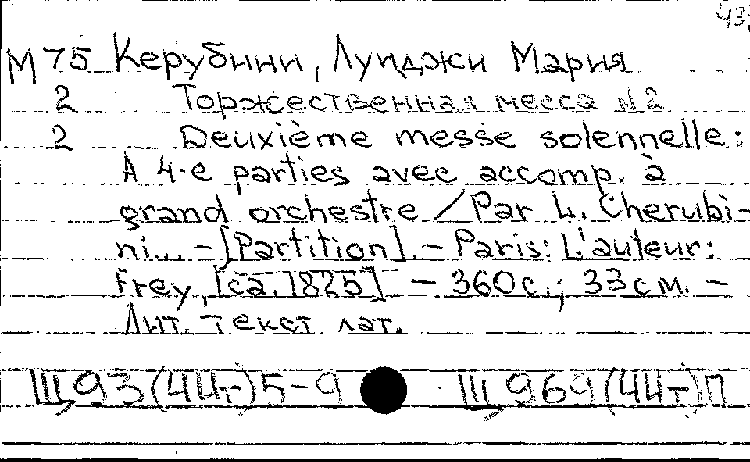 43
М75 Керубини, Луиджи Мария
2 Торжественная месса №2
2 Deuxième messe solennelle:
A 4-e parties avec accomp. à
grand orchestre / Par L. Cherubi-
ni... - [Partition]. - Paris: L'auteur:
Frey, [ca. 1825] - 360с.; 33см. -
Лит. текст лат.
Щ93(44т)5-9 Щ969(44т)П